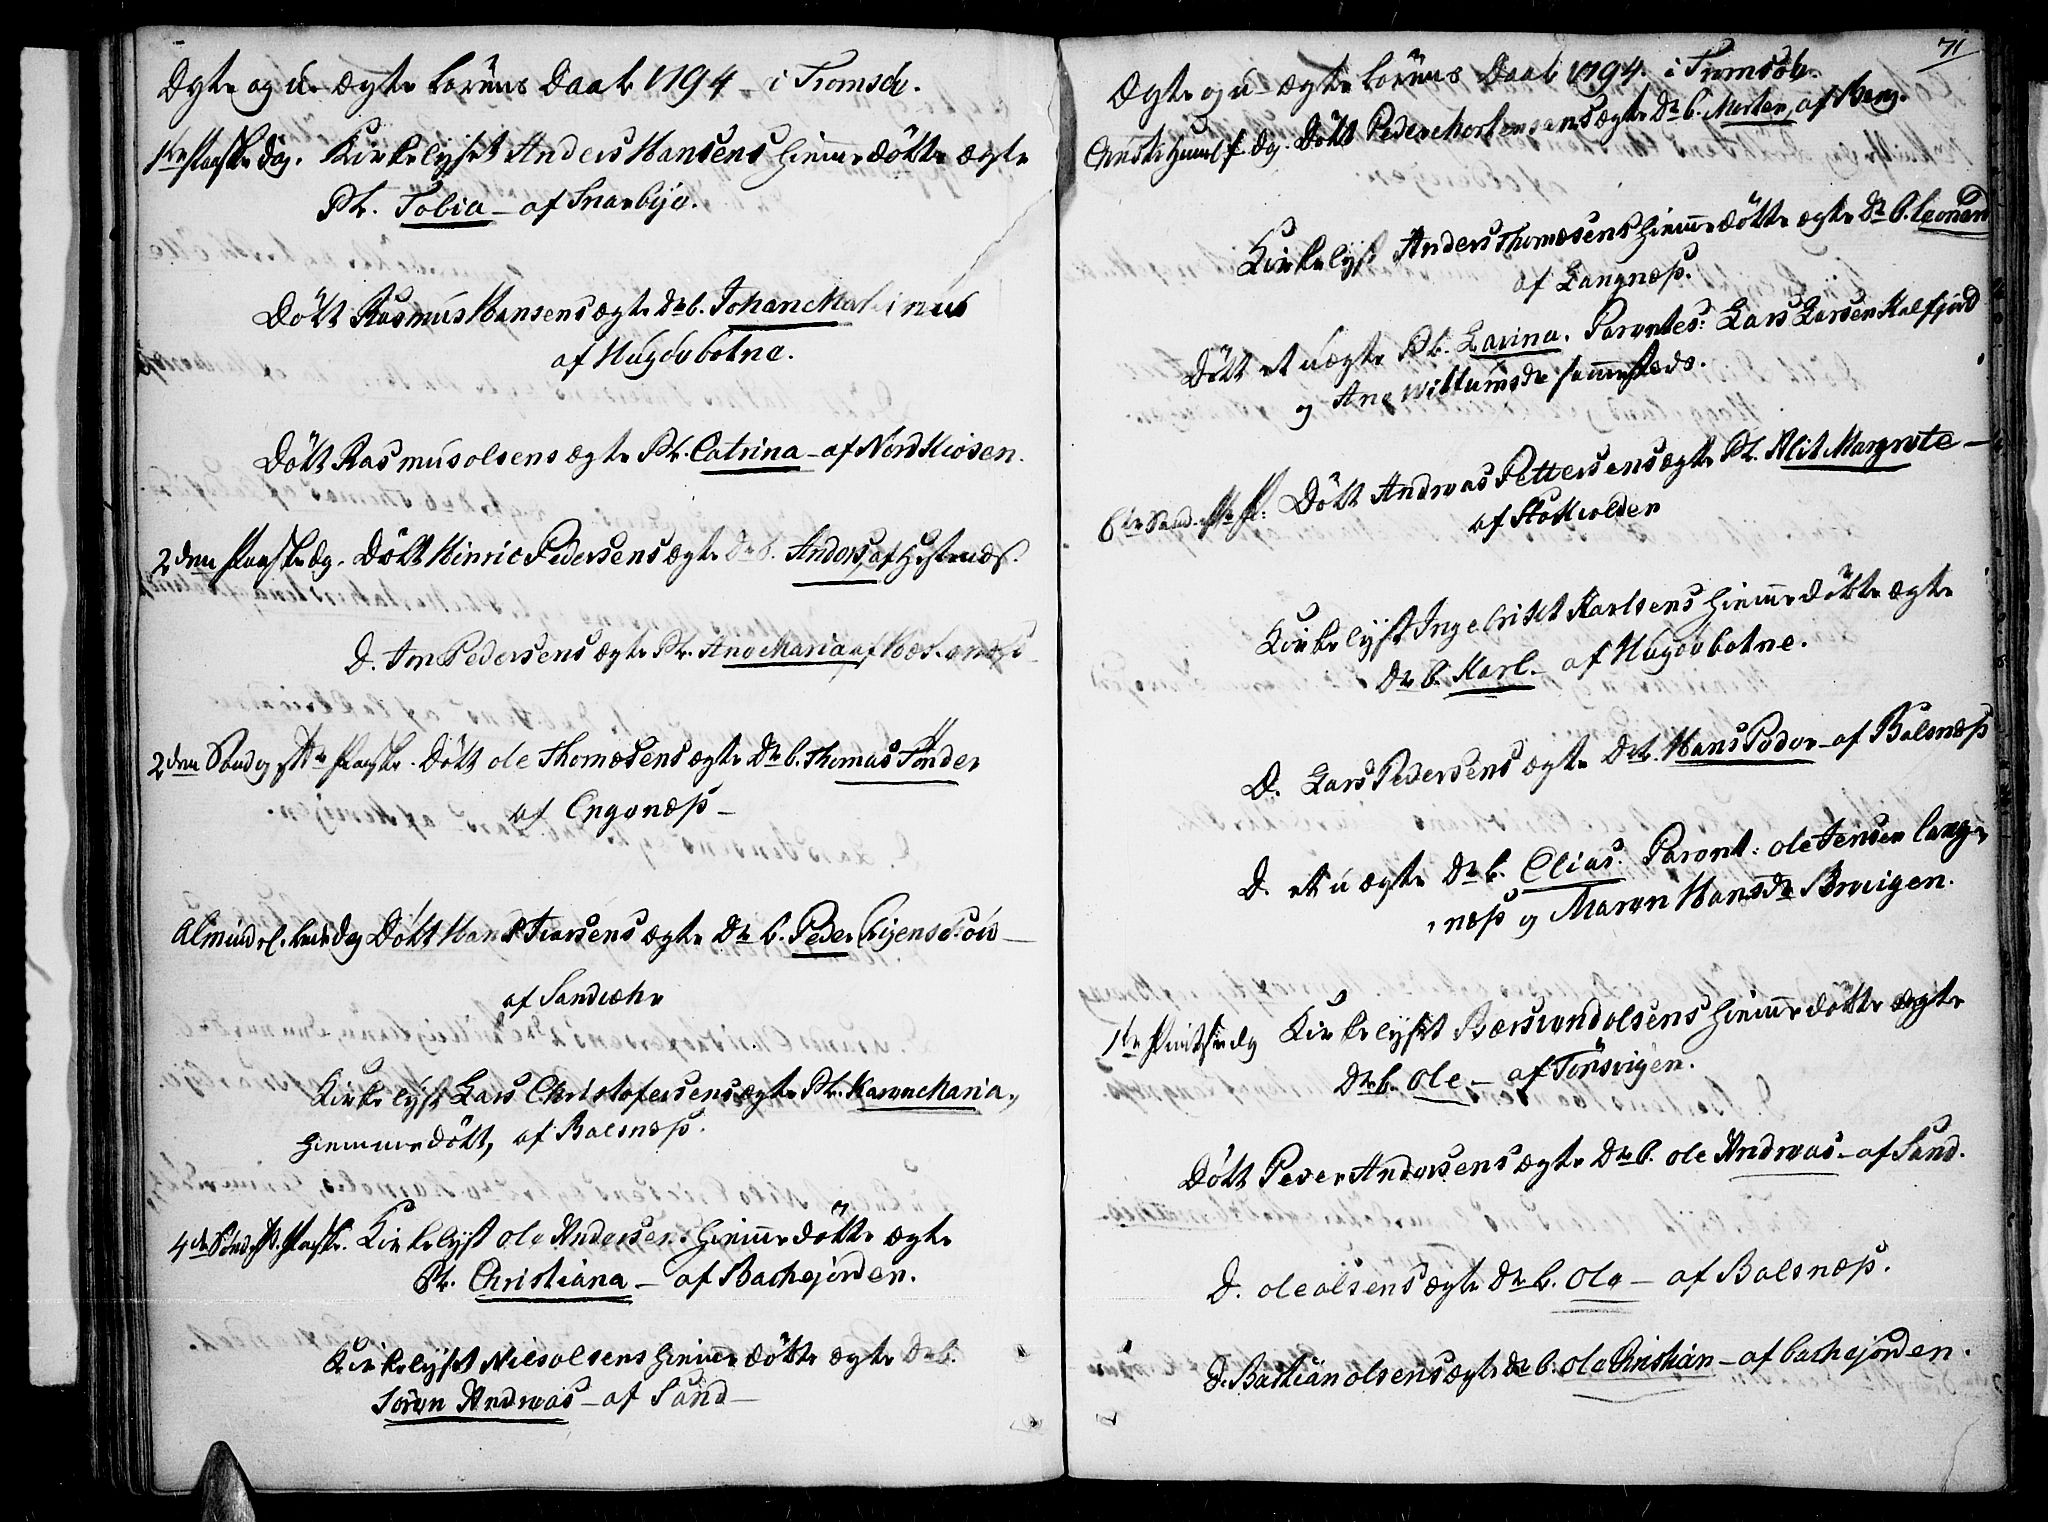 Ægte og u-ægte børns Daab 1794 i Tromsöe.
1te Paaske dag. Kirkelyst Anders Hansens hiemmedöbte ægte
Pb. Tobia – af Snarbye.
Döbt Rasmus Hansens ægte Drb. Johan Martinus
af Hugövbotne.
Döbt Rasmus Olsens ægte Pb. Catrina – af Nordkiosen.
2den Paaske dg. Döbt Hinric Pedersens ægte Drb. Anders, af Hestnæs.
D. Im Pedersens ægte Pb. Ane Maria af
2den Söndg efter Paaske. Döbt Ole Thomæsens ægte Drb. Thomas Tönder
af Engenæss –
Almindel. bededag Döbt Hans Iversens ægte Drb. Peder
af Sandvæhr
Kirkelyst Lars Christofersens ægte Pb. Karen Maria,
hiemmedöbt, af Balsnæss.
4de Sönd. eft. Paaske. Kirkelyst Ole Andersens hiemmedöbte ægte
Pb. Christiana – af Bachejorden.
Kirkelyst Nils Olsens hiemmedöbte ægte Drb.
Sören Andreas – af Sund –
71
Ægte og u-ægte börns Daab 1794. i Tromsöe.
Christi Himmelf. Dg. Döbt Peder Mortensens ægte Drb. Morten, af Berg.
Kirkelyst Anders Thomæsens hiemmedöbte ægte Drb. Leonard
af Langnæss.
Döbt et uægte Pb. Lavina. Parentes: Lars Larsen Kalfjord
og Ane Willumsdr sammesteds.
6te Sönd. efter P: Döbt Andreas Pettersens ægte Pb. Alit Margrete –
af Skatvolden
Kirkelyst Ingebrikt Karlsens hiemmedöbte ægte
Drb. Karl – af Hugövbotne.
D. Lars Pedersens ægte Drb. Hans Peder – af Balsnæss
D. et uægte Drb. Elias. Parent: Ole Jensen Lang-
næss og Maren Hansdr Brevigen.
1te Pintsedg Kirkelyst Bærsvend Olsens hiemmedöbte ægte
Drb. Ole – af Tönsvigen.
Döbt Peder Andersens ægte Drb. Ole Andreas – af Sund.
D. Ole Olsens ægte Drb. Ole – af Balsnæss.
D. Bastian Olsens ægte Drb. Ole Christian – af Bachejorden.